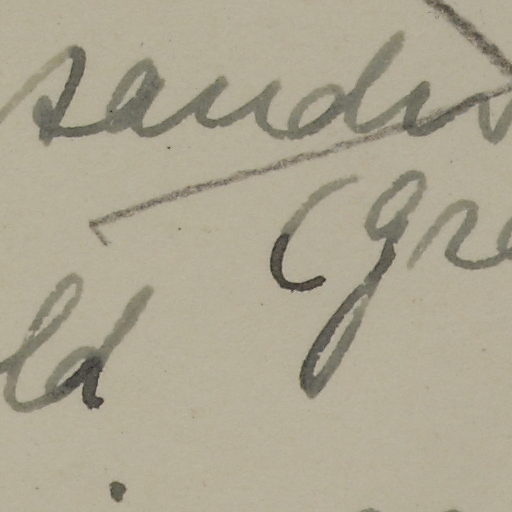 sandw
(gre
ld